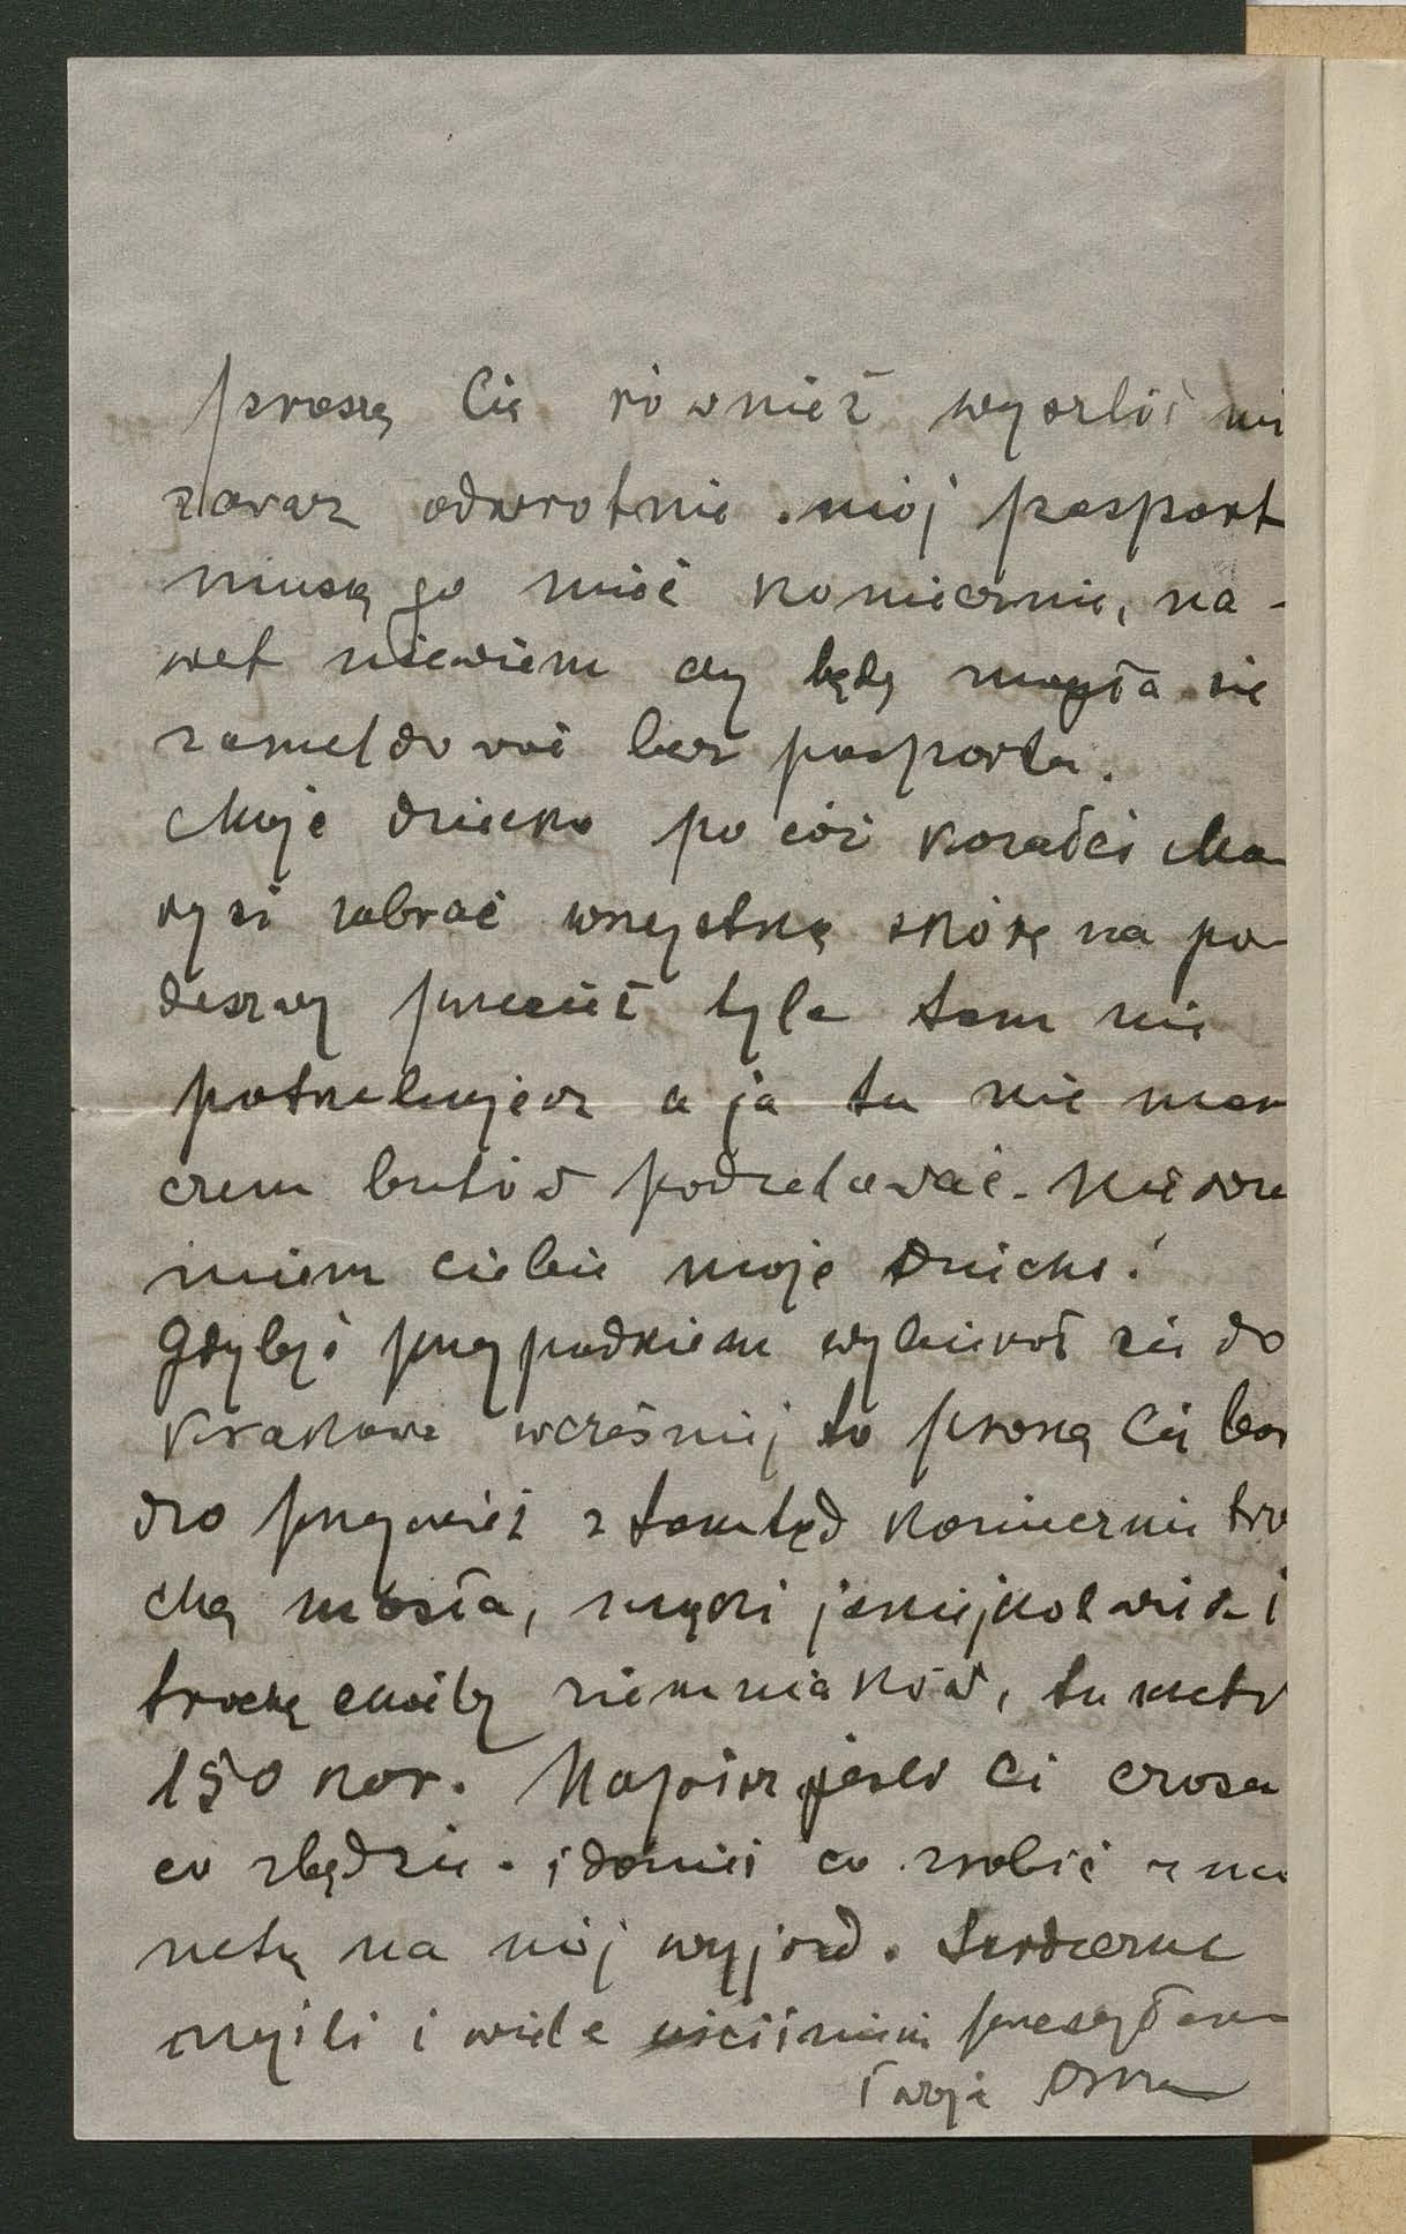 proszę Cię również wyszlić mi
zaraz odwrotnie mój paszport
muszę go mieć koniecznie, na-
wet niewiem czy będę mogła się
zameldować bez paszportu.
Moje dziecko po cóż kazałeś Ma
rysi zabrać wszystką skórę na po
deszwy przecież tyle tam nie
potrzebujesz a ja tu nie mam
czem butów podzelować. Nie rozu
miem ciebie moje dziecko!
Gdybyś przypadkiem wybierał się do
Krakowa wcześniej to proszę Cię bar
dzo przywieź ztamtąd koniecznie tro
chę masła, mąki jakiejkolwiek i
trochę choćby ziemniaków, tu metr
150 kor. Napisz jeśli Ci czasu
co zbędzie i donieś co zrobić z
na mój wyjazd. Serdeczne
myśli i wiele uściśnień przesyłam
Twoja